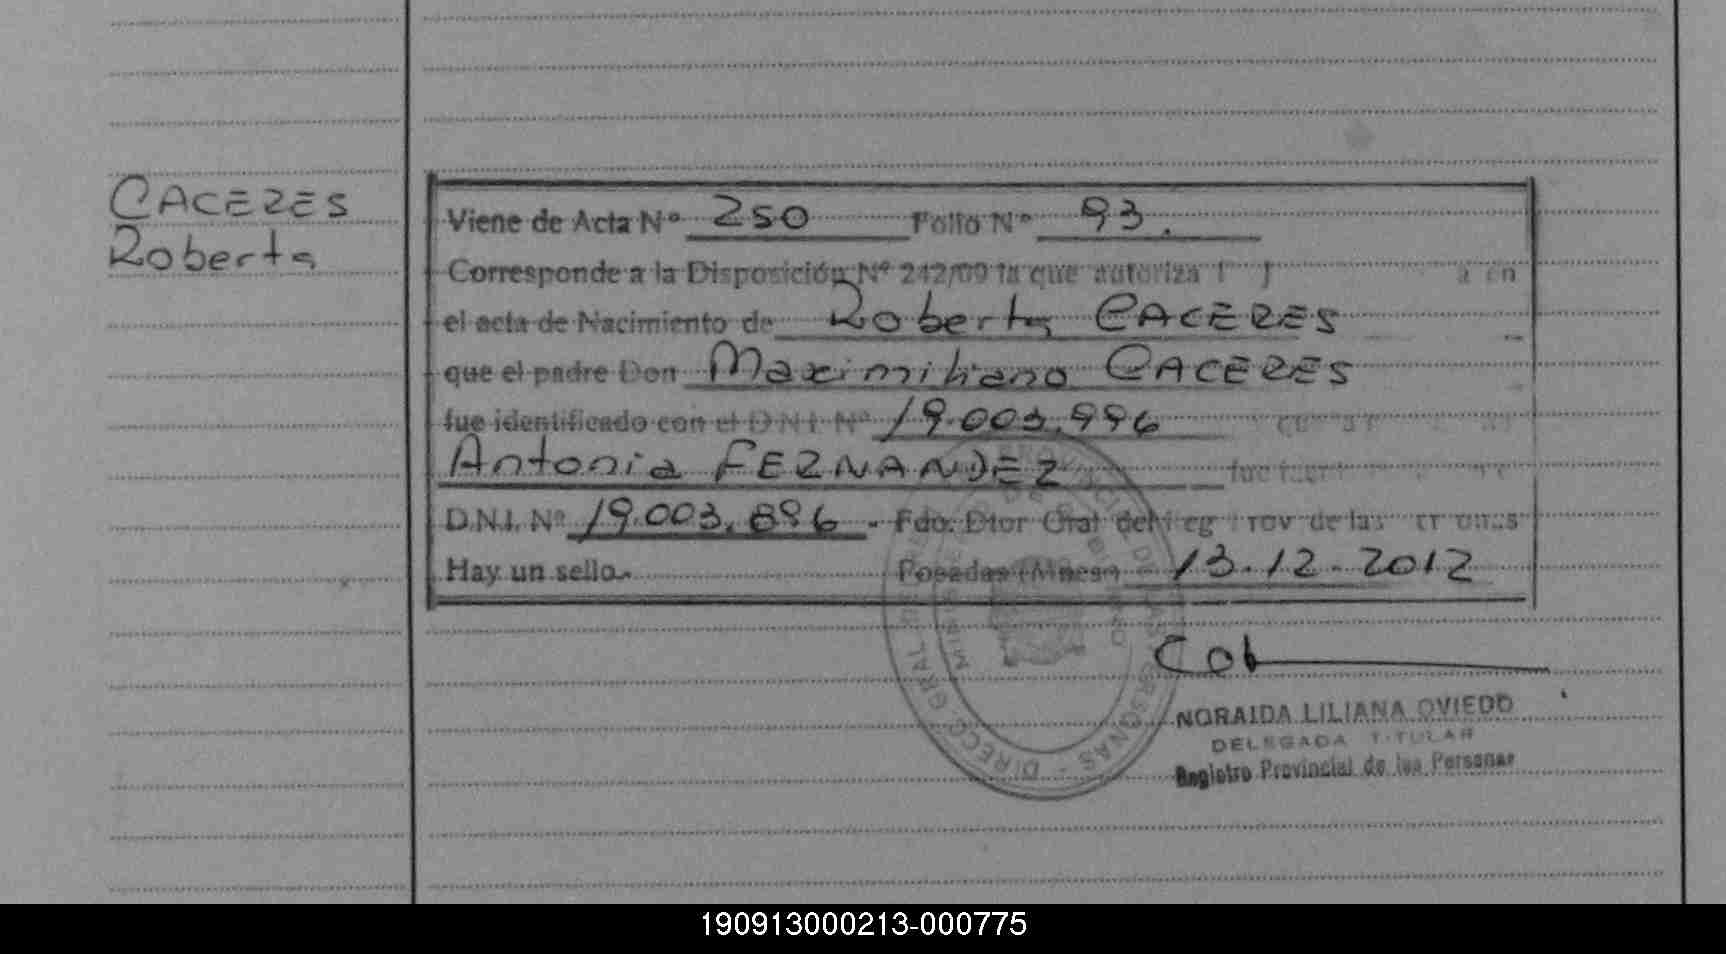 CACERES
Roberta
Viene de Acta Nº 250 Folio Nº 93.
Corresponde a la Disposición Nº 242/09 la que autoriza
el acta de Nacimiento de Roberta CACERES
que el padre Don Maximiliano CACERES
fue identificado con el D.N.I. Nº 19.003.996
Antonia FERNANDEZ fue
D.N.I. Nº 19.003.896 - Fdo. Dtor Gral del Reg Prov de las
Hay un sello.- Posadas (Mnes.) 13.12.2012
NORAIDA LILIANA OVIEDO
DELEGADA TITULAR
Registro Provincial de las Personas
190913000213-000775